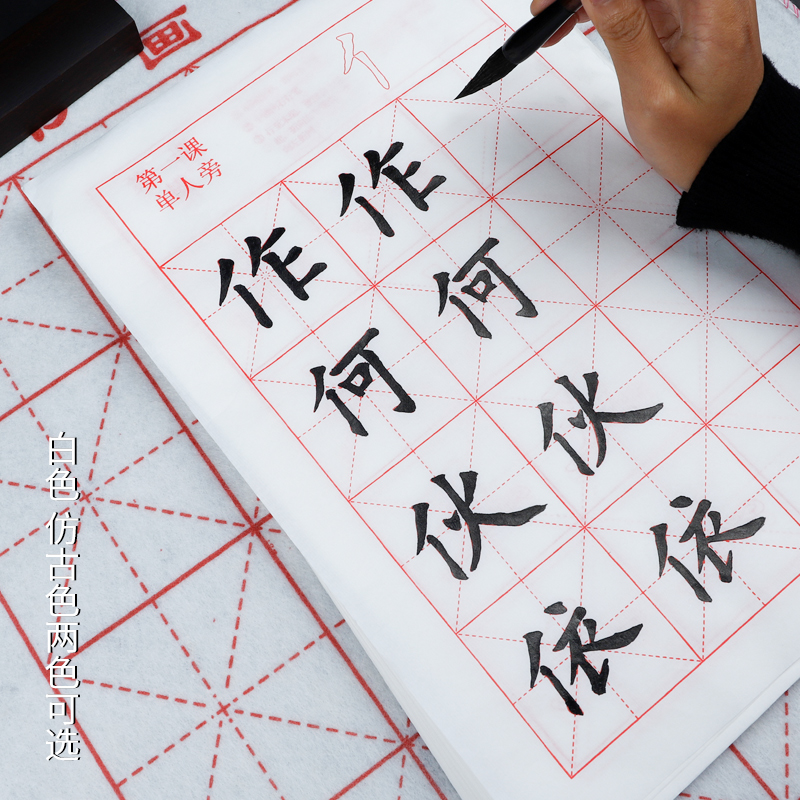 画
第一课
单人旁
亻
作作
何何
伙伙
依依
白色 仿古色两色可选